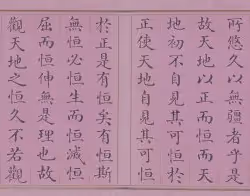 所悠久無疆者乎是
故天地以正而恒而天
地初不自見其可恒於
正使天地自見其可恒
於正是有恒矣有恒斯
無恒必恒生而恒滅恒
屈而恒伸無是理也故
觀天地之恒久不若觀